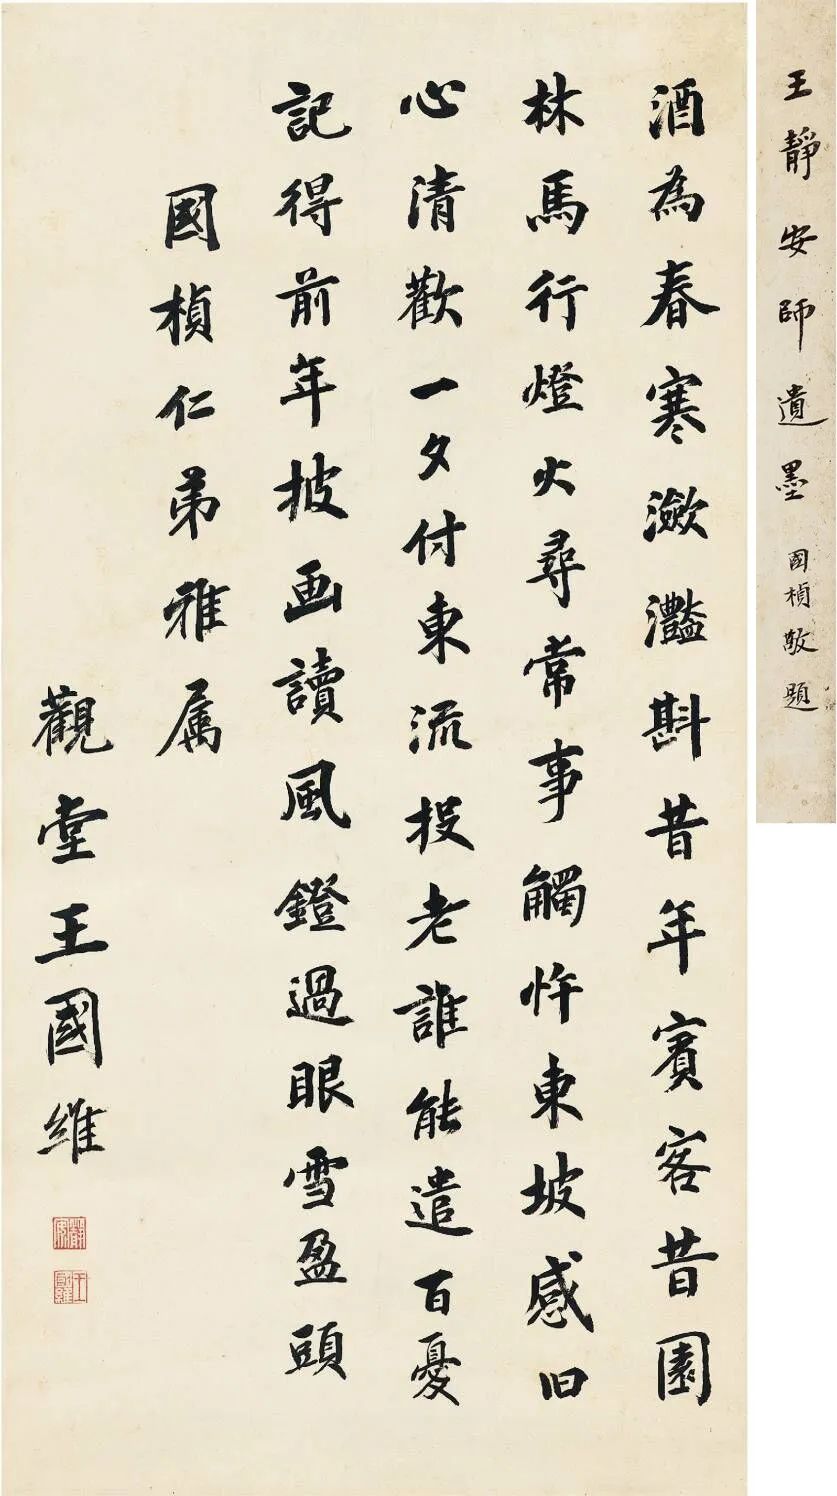 王靜安師遺墨 国楨敬題
酒為春寒瀲灩斟昔年賓客昔園
林馬行燈火尋常事觸忤東坡感旧
心清歡一夕付東流投老誰能遣百憂
記得前年披画讀風鐙過眼雪盈頭
國楨仁弟雅属
觀堂王國維
靜安
王國維